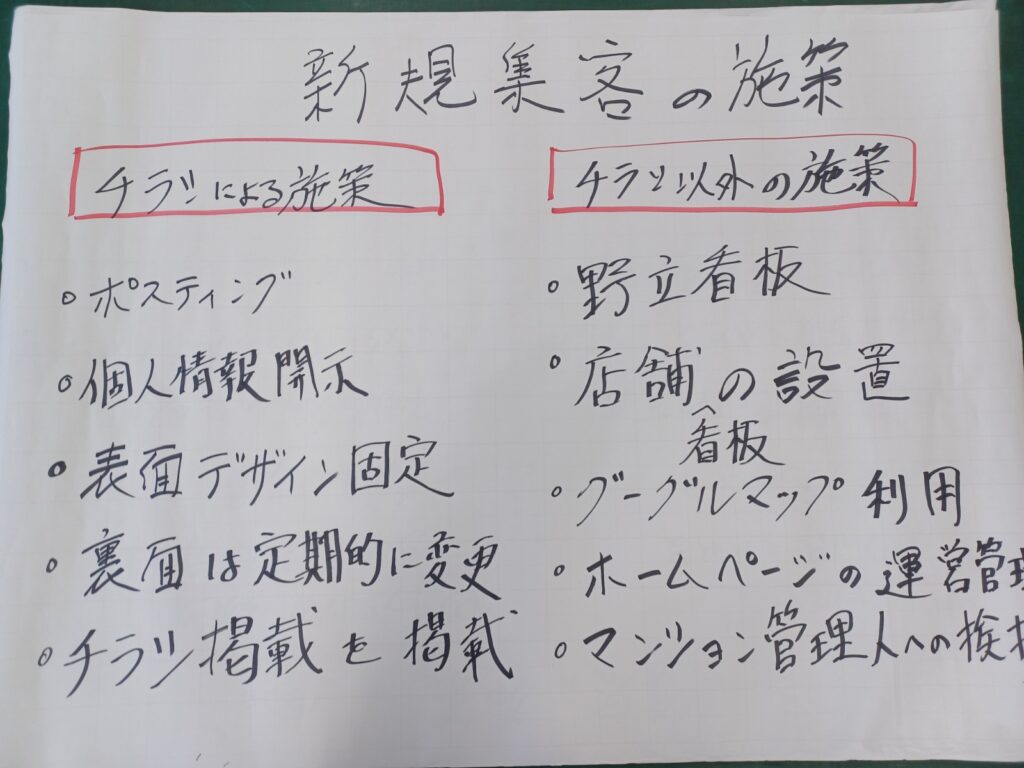 新規集客の施策
チラシによる施策
。ポスティング
。個人情報開示
。表面デザイン固定
。裏面は定期的に変更
。チラシ掲載を掲載
チラシ以外の施策
。野立看板
。店舗の設置
看板
。グーグルマップ利用
。ホームページの運営管理
。マンション管理人への挨拶